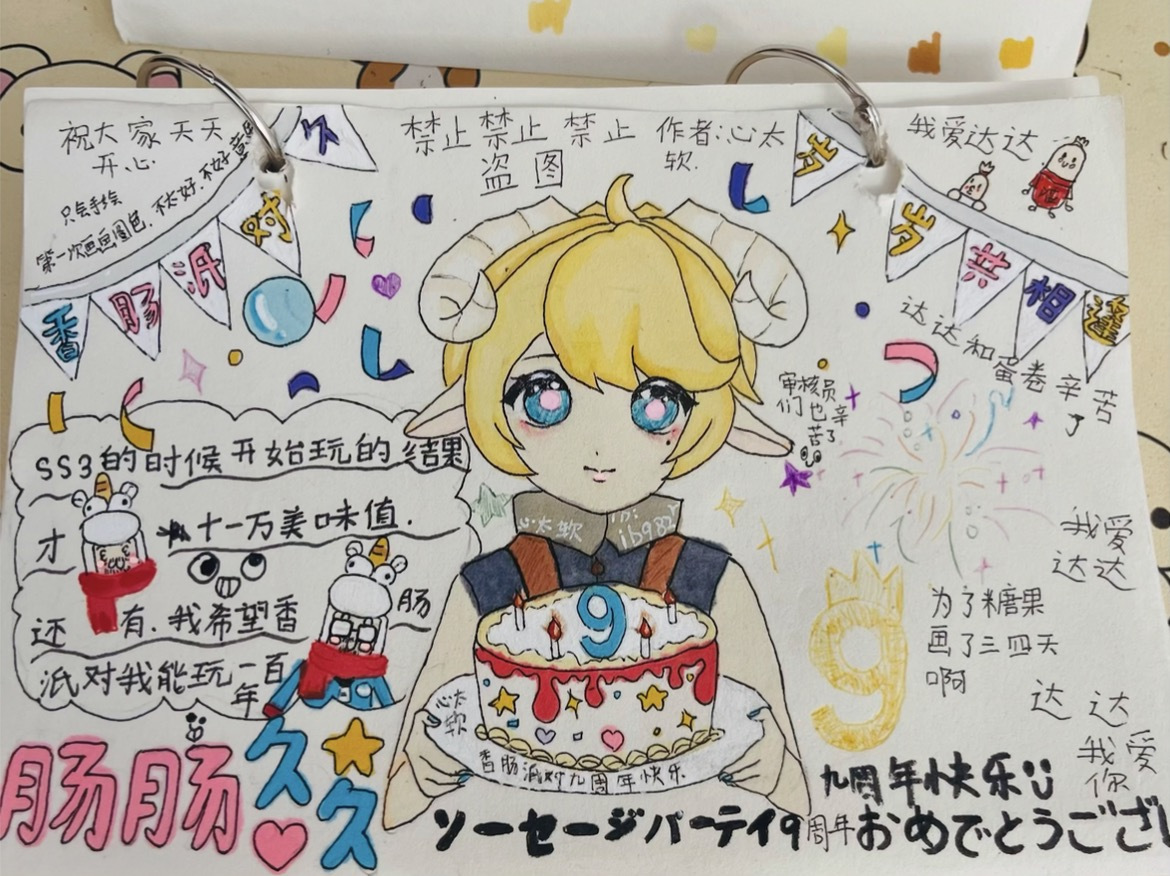 祝大家天天
开心
只会手绘
第一次画画圈色,不太好.不好意思
禁止 禁止 禁止
盗图
作者:心太
软.
我爱达达
香肠派对久
岁岁共相逢
达达和蛋卷辛苦
了
审核员
们也辛
苦了
SS3的时候开始玩的 结果
才 十一万美味值.
还有.我希望香肠
派对我能玩一百
年
心太软
ID:
9
心太
软
香肠派对九周年快乐
我爱
达达
9
为了糖果
画了三四天
啊
达达
我爱
你
肠肠久久
九周年快乐
ソーセージパーティ9周年おめでとうござ